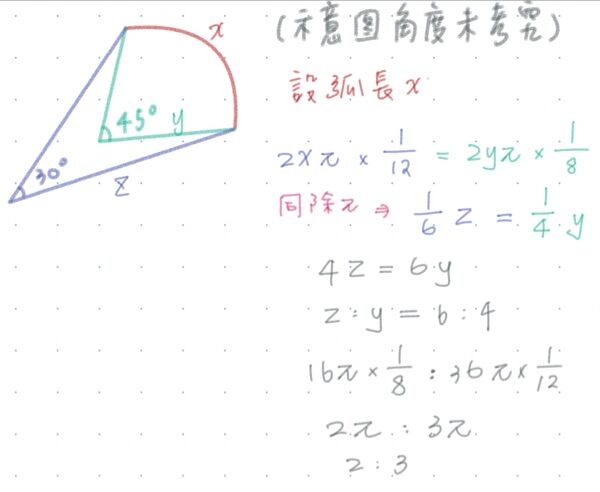 (示意图角度未考究)
x
45° y
30°
z
設弧長x
2xπ × 1/12 = 2yπ × 1/8
同除π ⇒ 1/6 z = 1/4 . y
4z = 6.y
z : y = 6 : 4
16π × 1/8 : 36π × 1/12
2π : 3π
2 : 3